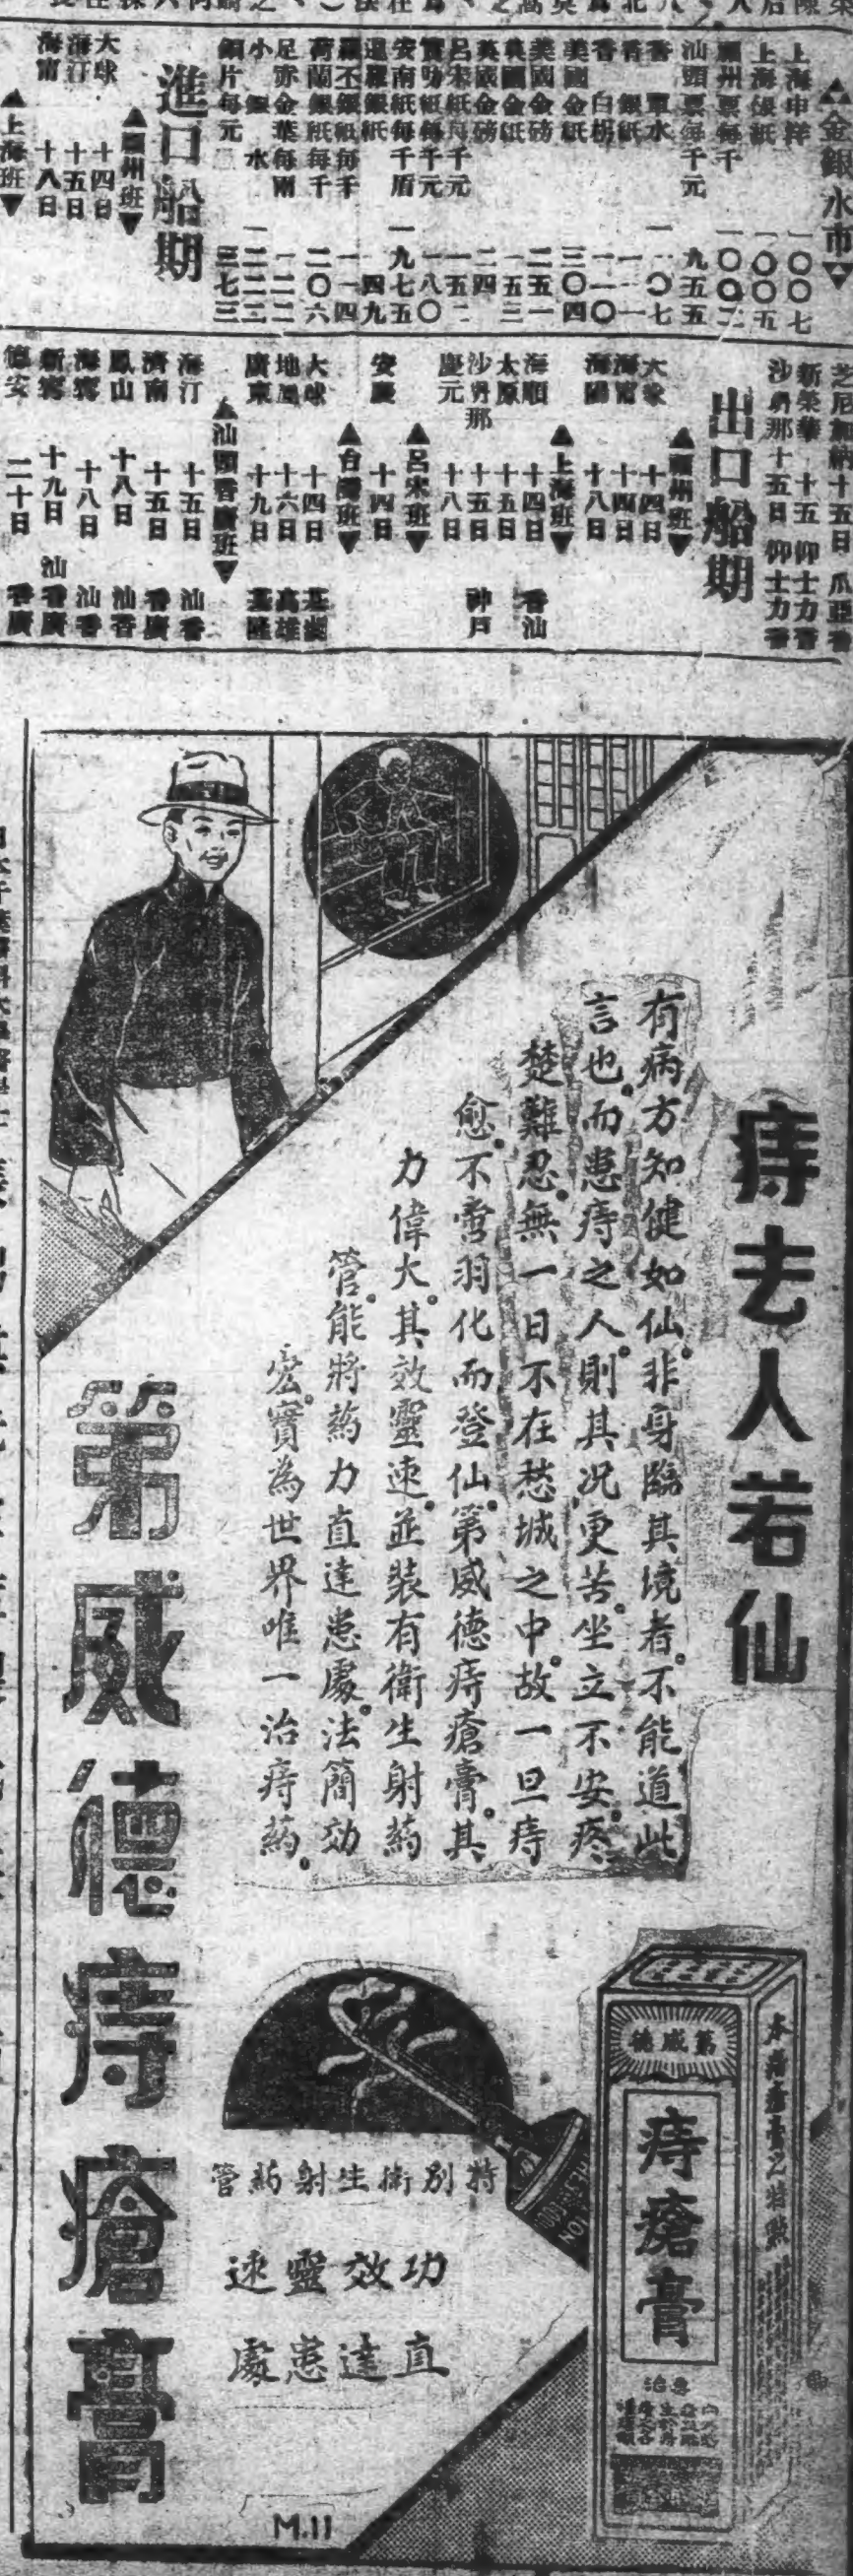 金銀水市
上海申洋 一〇〇七
上海銀紙 一〇〇五
福州票每千 一〇〇二
汕頭票每千元 九五五
香 單水 一一〇七
香 銀紙 一一一
香 白柺 一一〇
美國金紙 三〇四
美國金磅 二五一
英國金紙 一五三
英國金磅 二四
呂宋紙每千元 一五二
實叻紙每千元 一八〇
安南紙每千盾 一九七五
暹羅銀紙 四九
羅丕銀紙每千 一一四
荷蘭銀紙每千 二〇六
足赤金葉每兩 一二二
小銀水 一二二二
銅片每元 三七三
進口船期
▲福州班▼
大球 十四日
海汀 十五日
海甯 十八日
▲上海班▼
芝尼加納 十五日 爪亞香
新榮華 十五 仰士力香
沙丹那 十五日 仰士力香
出口船期
▲福州班▼
大球 十四日
海甯 十四日
海陽 十八日
▲上海班▼
海順 十四日 香汕
太原 十五日
沙丹那 十五日 神戶
慶元 十八日
▲呂宋班▼
安慶 十四日
▲台灣班▼
大球 十四日 基澎
地風 十六日 高雄
廣東 十九日 基隆
▲汕頭香廣班▼
海汀 十五日 汕香
濟南 十五日 香廣
鳳山 十八日 汕香
海甯 十八日 汕香
新甯 十九日 汕香廣
德安 二十日 香廣
痔去人若仙
有病方知健如仙。非身臨其境者。不能道此
言也。而患痔之人。則其况更苦。坐立不安。疼
楚難忍。無一日不在愁城之中。故一旦痔
愈。不啻羽化而登仙。第威德痔瘡膏。其
力偉大。其效靈速。並裝有衛生射葯
管。能將葯力直達患處。法簡効
宏。實為世界唯一治痔葯。
第威德痔瘡膏
特別衛生射葯管
功效靈速
直達患處
第威德
痔瘡膏
專治
本痔瘡膏之特點
M.11